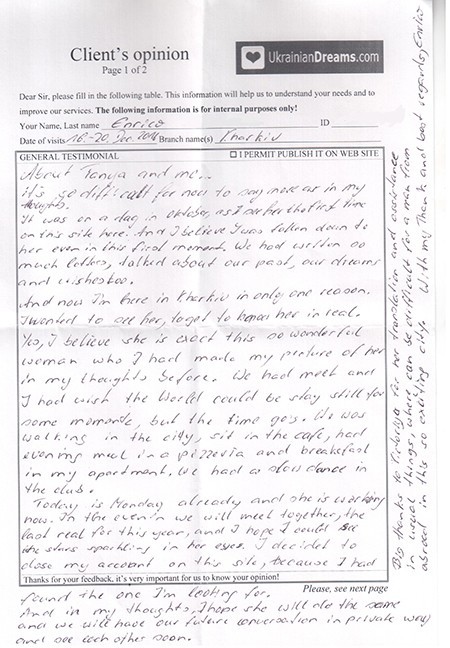 Client's opinion
Page 1 of 2
UkrainianDreams.com
Dear Sir, please fill in the following table. This information will help us to understand your needs and to
improve our services. The following information is for internal purposes only!
Your Name, Last name Enrico ID
Date of visits 16.-20. Dec. 2016 Branch name(s) Kharkiv
GENERAL TESTIMONIAL ☐ I PERMIT PUBLISH IT ON WEB SITE
About Tanya and me...
it's so difficalt for now to say more as in my
thoughts.
It was on a day in oktober, as I see her the first time
on this site here. And I believe I was fallen down to
her even in this first moment. We had written so
much letters, talked about our past, our dreams
and wishes too.
And now I'm here in Kharkiv in only one reason.
I wanted to see her, to get to know her in real.
Yes, I believe she is exact this so wonderful
woman who I had made my picture of her
in my thoughts before. We had meet and
I had wish the World could be stay still for
some moments, but the time go's. We was
walking in the city, sit in the cafe, had
evening meal in a pizzeria and breakfast
in my apartment. We had a slow dance in
the club.
Today is Monday already and she is working
now. In the evenin we will meet together, the
last real for this year, and I hope I could see
the stars sparkling in her eyes. I decidet to
close my account on this site, because I had
Thanks for your feedback, it's very important for us to know your opinion!
Please, see next page
found the one I'm looking for.
And in my thoughts, I hope she will do the same
and we will have our future conversation in private way
and see each other soon.
Big thanks to for her translation and assistance
in usual things, where can be difficalt for a man from
abroad in this so exciting city. With my thank and best regards, Enrico